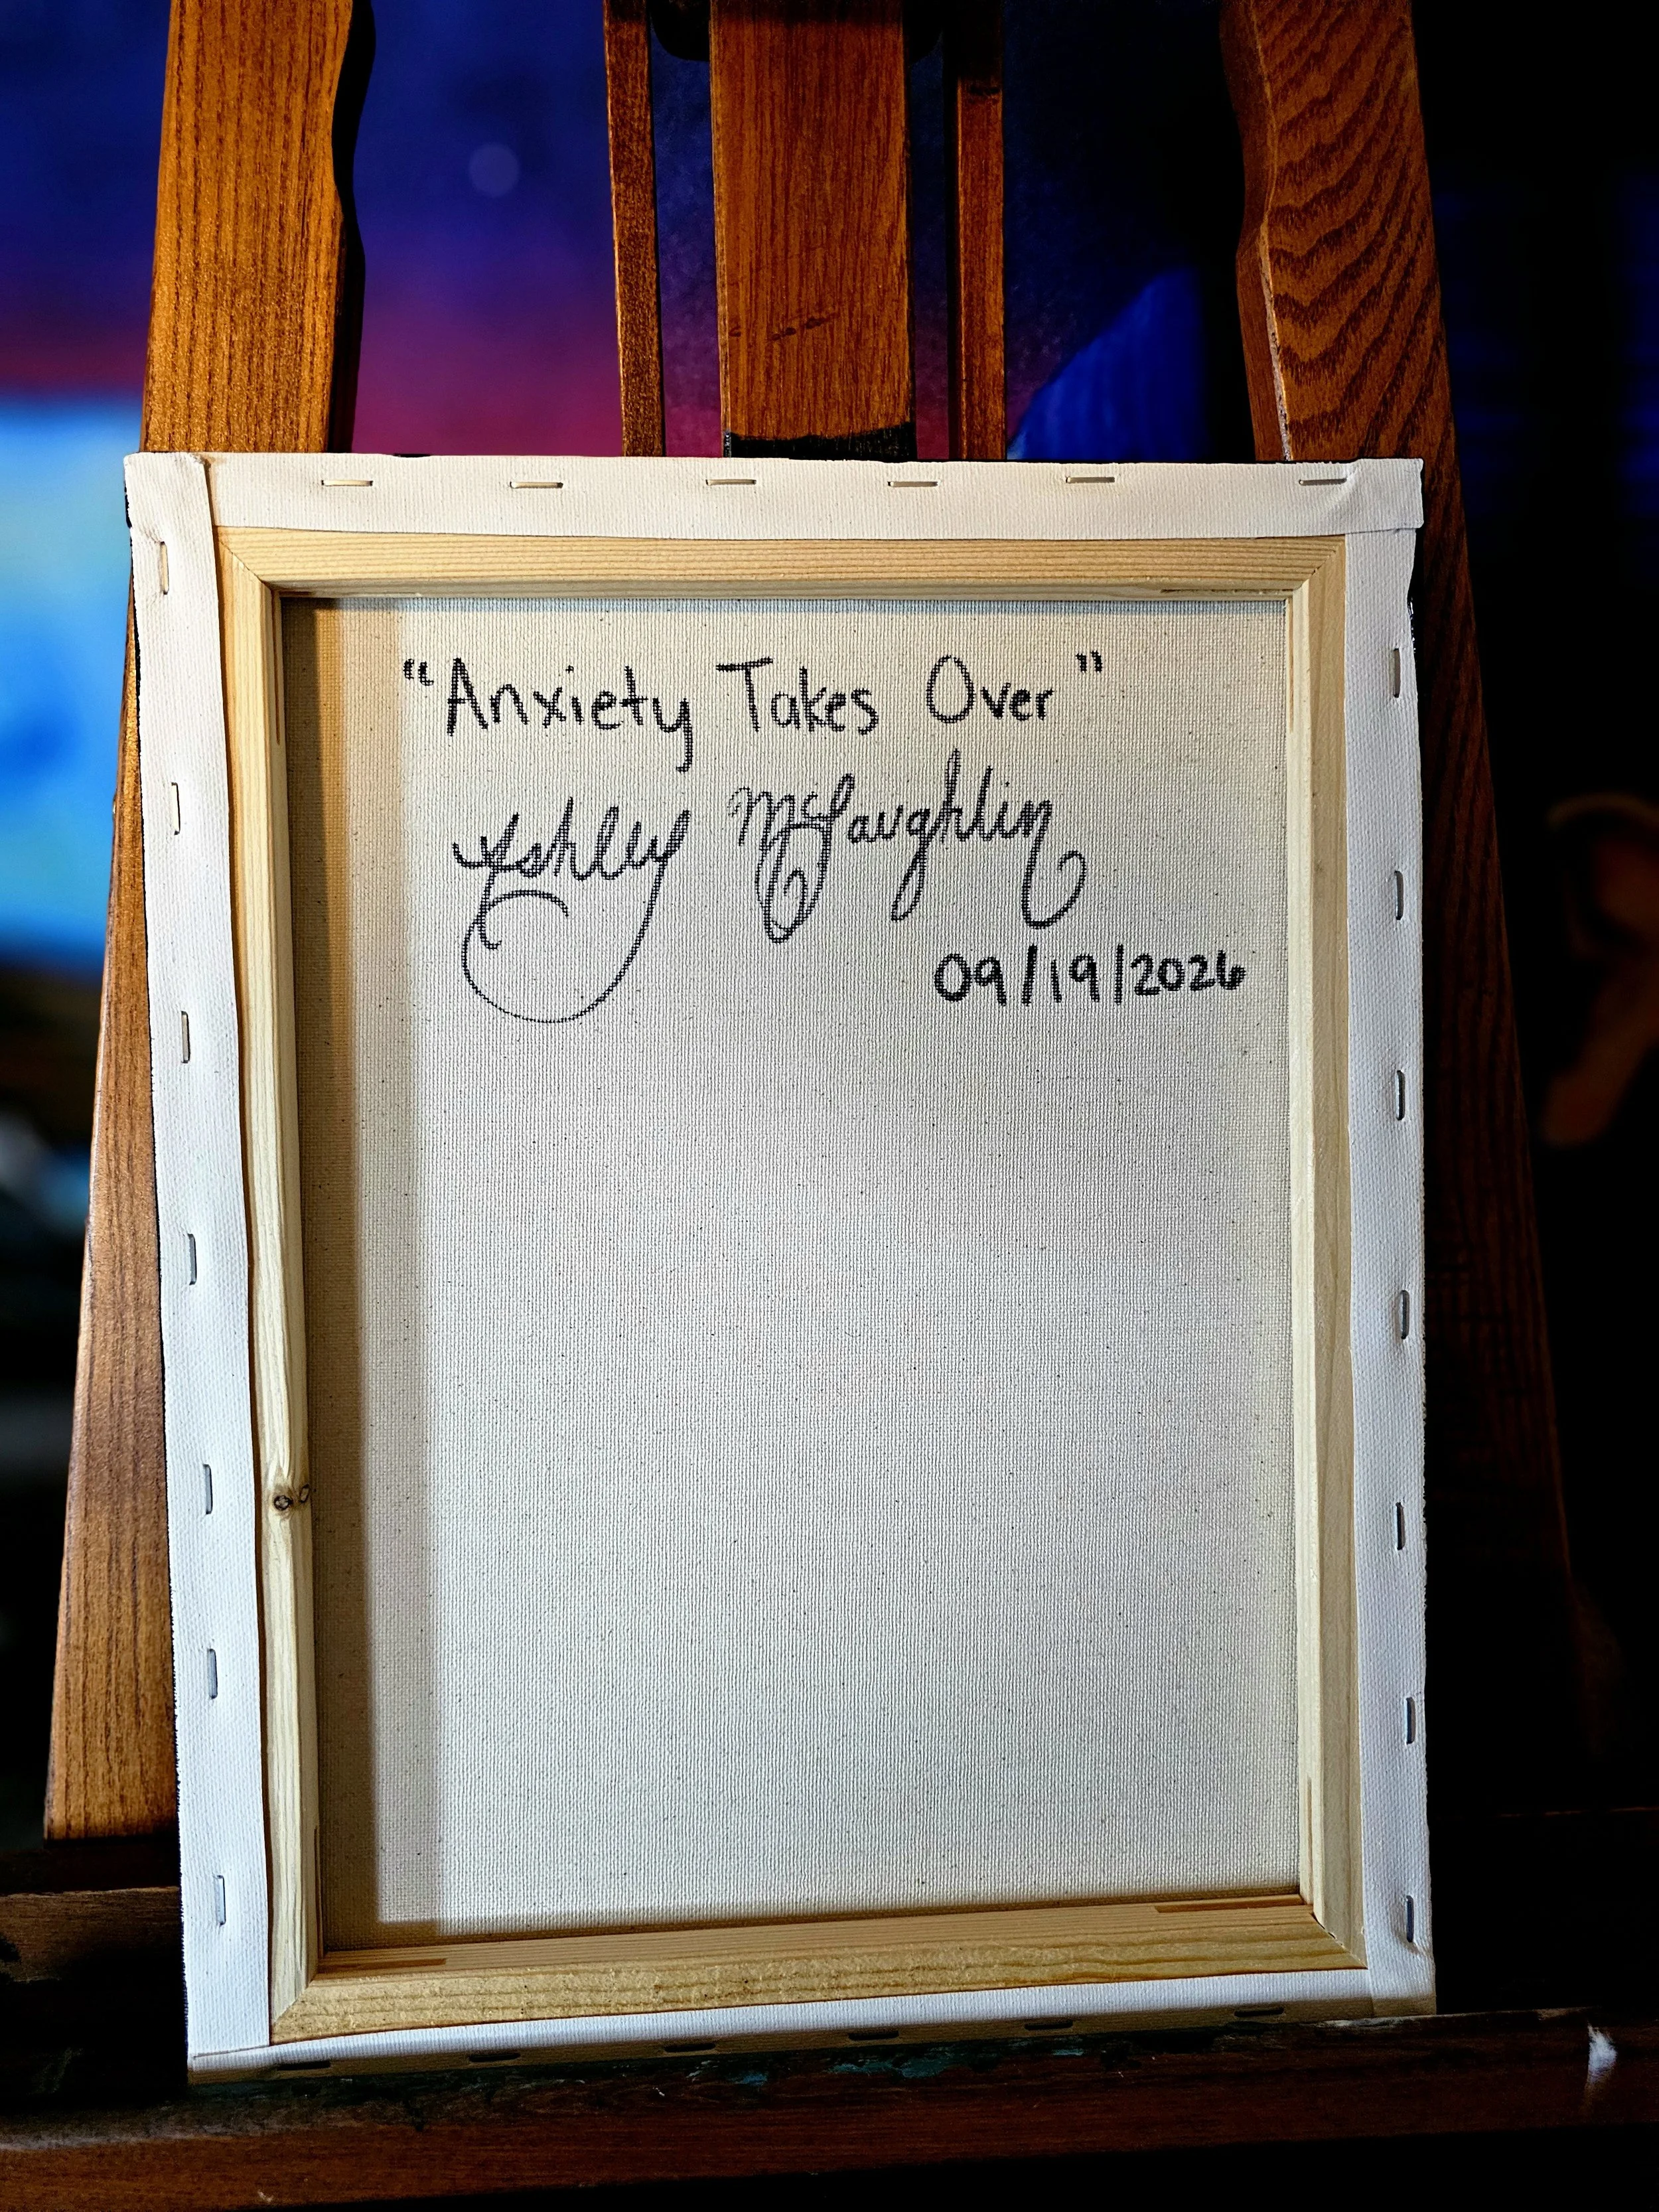 “Anxiety Takes Over”
Ashley McLaughlin
09/19/2026